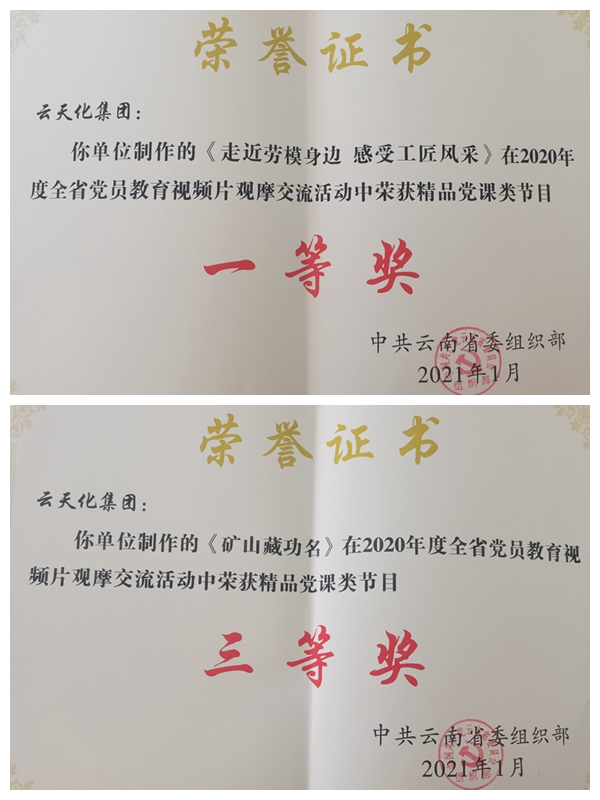 荣誉证书
云天化集团：
你单位制作的《走近劳模身边 感受工匠风采》在2020年
度全省党员教育视频片观摩交流活动中荣获精品党课类节目
一等奖
中共云南省委组织部
2021年1月
组织部
荣誉证书
云天化集团：
你单位制作的《矿山藏功名》在2020年度全省党员教育视
频片观摩交流活动中荣获精品党课类节目
三等奖
中共云南省委组织部
2021年1月
组织部